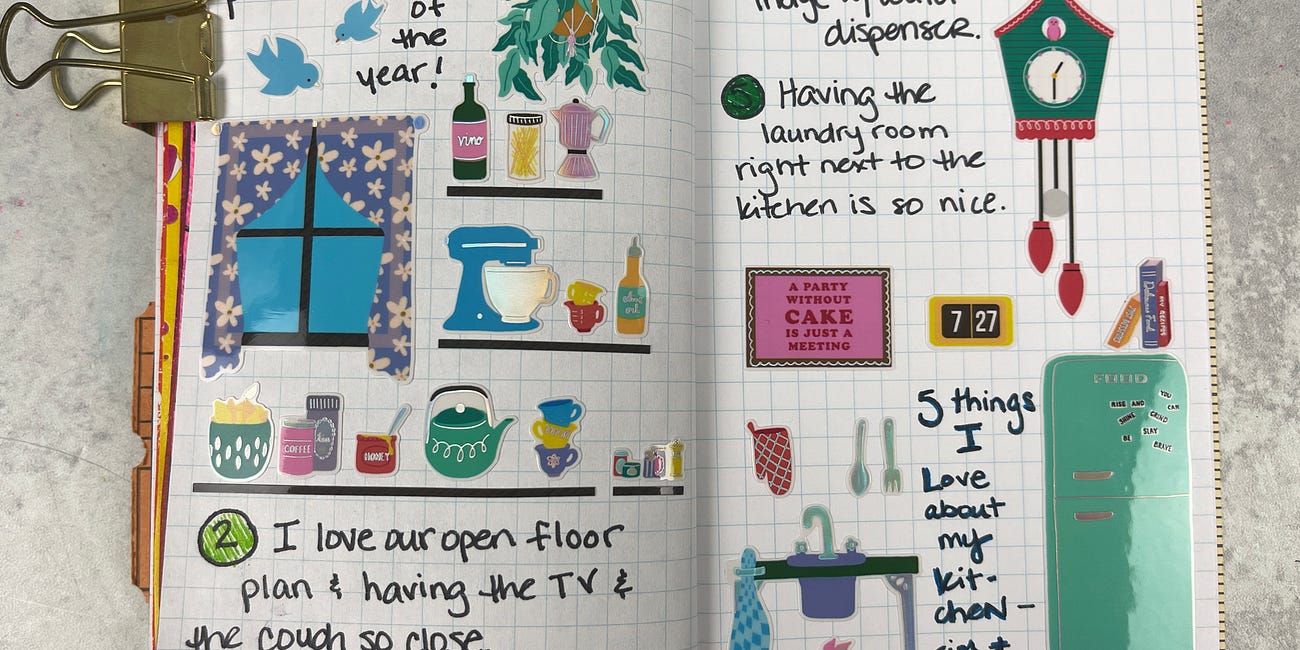 of
the
year!
vino
COFFEE
HONEY
2 I love our open floor
plan & having the TV &
the couch so close.
dispenser.
5 Having the
laundry room
right next to the
kitchen is so nice.
A PARTY
WITHOUT
CAKE
IS JUST A
MEETING
7 27
MY RECIPES
5 things
I
Love
about
my
kit-
cheN-
FOOD
YOU
RISE AND
CAN
SHINE
GRIND
BE
SLAY
BRAVE